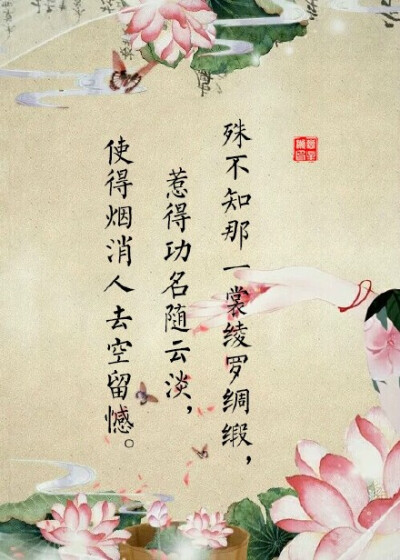 殊不知那一裳绫罗绸缎，
惹得功名随云淡，
使得烟消人去空留憾。